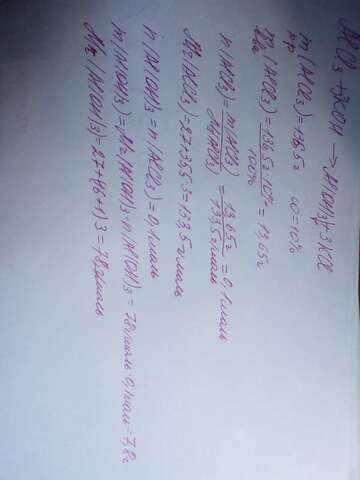 AlCl₃ + 3KOH → Al(OH)₃↓ + 3KCl
m р-р (AlCl₃) = 136,5 г   ω = 10%
m в-ва (AlCl₃) = 136,5 г · 10% / 100% = 13,65 г
n (AlCl₃) = m (AlCl₃) / M (AlCl₃) = 13,65 г / 133,5 г/моль = 0,1 моль
Mr (AlCl₃) = 27 + 35,5 · 3 = 133,5 г/моль
n (Al(OH)₃) = n (AlCl₃) = 0,1 моль
m (Al(OH)₃) = Mr (Al(OH)₃) · n (Al(OH)₃) = 78 г/моль · 0,1 моль = 7,8 г
Mr (Al(OH)₃) = 27 + (16 + 1) 3 = 78 г/моль